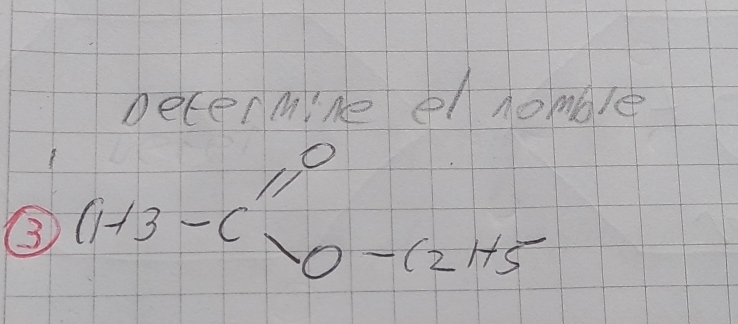 Determine el nomble
1
O
//
③ CH3 - C
\
O - C2H5